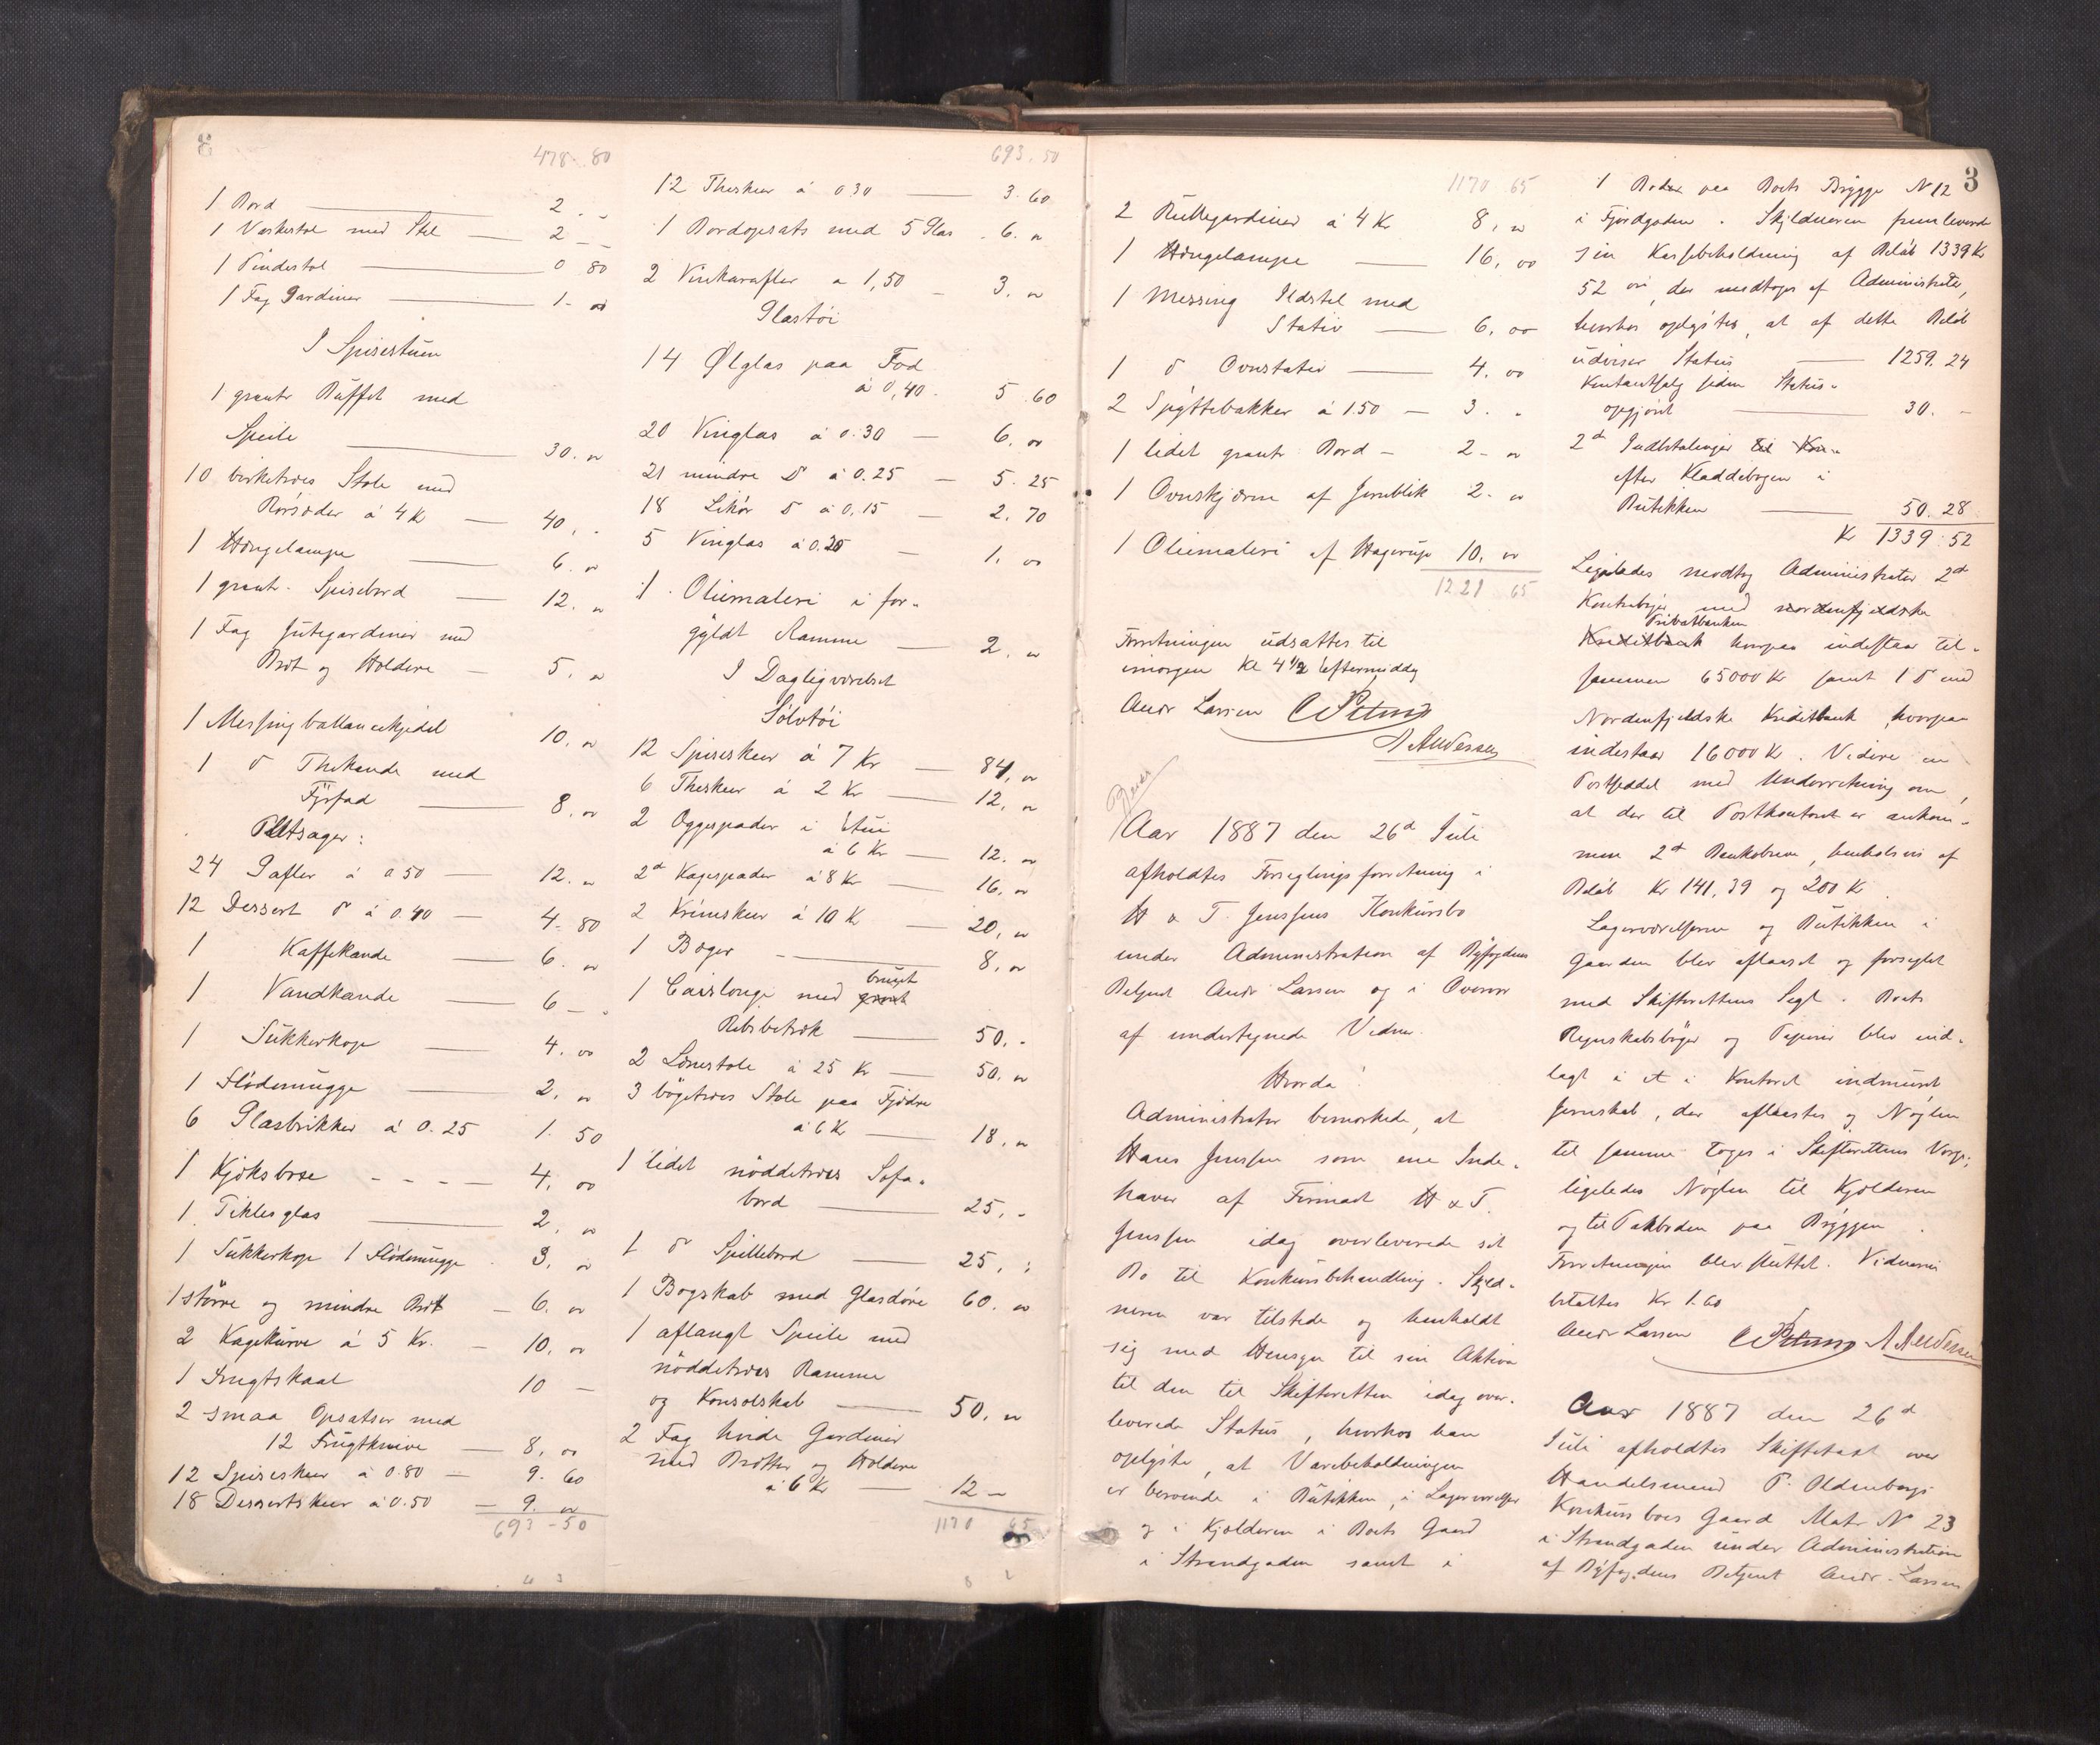 478. 80
1 Bord 2. -
1 Vaskestol med Stel 2 - -
1 Pindestol 0 80
1 Fag Gardiner 1 - 00
I Spisestuen
1 grantr Buffet med
Speile 30. 00
10 birketræes Stole med
Rørsæder á 4 Kr 40, -
1 Hængelampe 6. 00
1 grantr. Spisebord 12. 00
1 Fag Jutegardiner med
Bret og Holdere 5. 00
1 Messingballancekjedel 10. 00
1 do Thekande med
Fyrfad 8. 00
Pletsager:
24 Gafler á 0 50 12. 00
12 Dessert do á 0.40 4. 80
1 Kaffekande 6. 00
1 Vandkande 6 - -
1 Sukkerkop 4. 00
1 Flødemugge 2. 00
6 Glasbrikker á 0.25 1. 50
1 Kjæksbøse 4. 00
1 Piklesglas 2. 00
1 Sukkerkop 1 Flødemugge 3. 00
1 større og mindre Bret 6. 00
2 Kagekurve á 5 Kr. 10. 00
1 Frugtskaal 10 -
2 smaa Opsatser med
12 Frugtknive 8. 00
12 Spiseskeer á 0.80 9. 60
18 Dessertskeer á 0.50 9. 00
693 - 50
693. 50
12 Theskeer á 0 30 3. 60
1 Bordopsats med 5 Glas 6. 00
2 Vinkarafler a 1,50 3. 00
Glastøi
14 Ølglas paa Fod
á 0,40 5. 60
20 Vinglas á 0.30 6. 00
21 mindre do á 0.25 5. 25
18 Likør do á 0.15 2. 70
5 Vinglas á 0.20 1. 00
1 Oliemaleri i for-
gyldt Ramme 2. 00
I Dagligværelset
Sølvtøi
12 Spiseskeer á 7 Kr 84. 00
6 Theskeer á 2 Kr 12. 00
2 Øggespader i Etui
á 6 Kr 12. 00
2 do Kagespader á 8 Kr 16. 00
2 Kremskeer á 10 Kr 20. 00
1 Bæger 8. 00
1 Caislonge med grønt bruset
Ribsbetræk 50. -
2 Lænestole á 25 Kr 50. 00
3 bøgetræes Stole paa Fjædre
á 6 Kr 18. 00
1 lidet nøddetræes Sofa-
bord 25. -
1 do Spillebord 25. -
1 Bogskab med Glasdøre 60. 00
1 aflangt Speile med
nøddetræes Ramme
og Konsolskab 50. 00
2 Fag hvide Gardiner
med Bretter og Holdere
á 6 Kr 12 -
1170 65
1170 65
2 Rullegardiner á 4 Kr 8. 00
1 Hængelampe 16. 00
1 Messing Ildstel med
Stativ 6. 00
1 do Ovnstativ 4. 00
2 Spyttebakker á 1.50 3. -
1 lidet grantr Bord 2 - 00
1 Ovnskjærm af Jernblik 2. 00
1 Oliemaleri af Hagerup 10. 00
1221 65
Forretningen udsattes til
imorgen Kl 4 1/2 Eftermiddag
Andr Larsen
A Andersen
Aar 1887 den 26de Juli
afholdtes Forseglingsforretning i
H & T. Jenssens Konkursbo
under Administration af Byfogdens
Betjent Andr Larsen og i Overvær
af undertegnede Vidner.
Hvorda:
Administrator bemærkede, at
Hans Jenssen som ene Inde-
haver af Firmaet H & T.
Jenssen idag overleverede sit
Bo til Konkursbehandling. Skyld-
neren var tilstede og henholdt
sig med Hensyn til sin Aktiva
til den til Skifteretten idag over-
leverede Status, hvorhos han
oplyste, at Varebeholdningen
er beroende i Butikken, i Lagerværelser
og i Kjælderen i Boets Gaard
i Strandgaden samt i
3
1 Boder paa Boets Brygge No 12
i Fjordgaden. Skyldneren fremleverede
sin Kassebeholdning af Beløb 1339 Kr
52 øre, der modtoges af Administrator,
hvorhos oplystes, at af dette Beløb
udviser Status 1259. 24
Kontantsalg siden Status-
opgjort 30. -
2de Indbetalinger til Kon-
efter Kladdebogen i
Butikken 50. 28
Kr 1339.52
Ligeledes modtog Administrator 2de
Kontrabøger med nordenfjeldske
Privatbanken
Kreditbank hvorpaa indestaar til-
sammen 65000 Kr samt 1 do med
Nordenfjeldske Kreditbank, hvorpaa
indestaar 16000 Kr. Videre en
Postseddel med Underretning om,
at der til Postkontoret er ankom-
men 2de Bankobreve, henholdsvis af
Beløb Kr 141,39 og 200 Kr.
Lagerværelserne og Butikken i
Gaarden blev aflaaset og forseglet
med Skifterettens Segl. Boets
Regnskabsbøger og Papirer blev ind-
lagt i et i Kontoret indmuret
Jernskab, der aflaastes og Nøglen
til samme toges i Skifterettens Værge;
ligeledes Nøglen til Kjælderen
og til Pakboden paa Bryggen.
Forretningen blev sluttet. Vidnerne
betaltes Kr 1.60
Andr Larsen A Andersen
Aar 1887 den 26de
Juli afholdtes Skiftetaxt over
Handelsmand P. Oldenborgs
Konkursboes Gaard Matr No 23
i Strandgaden under Administration
af Byfogdens Betjent Andr. Larsen